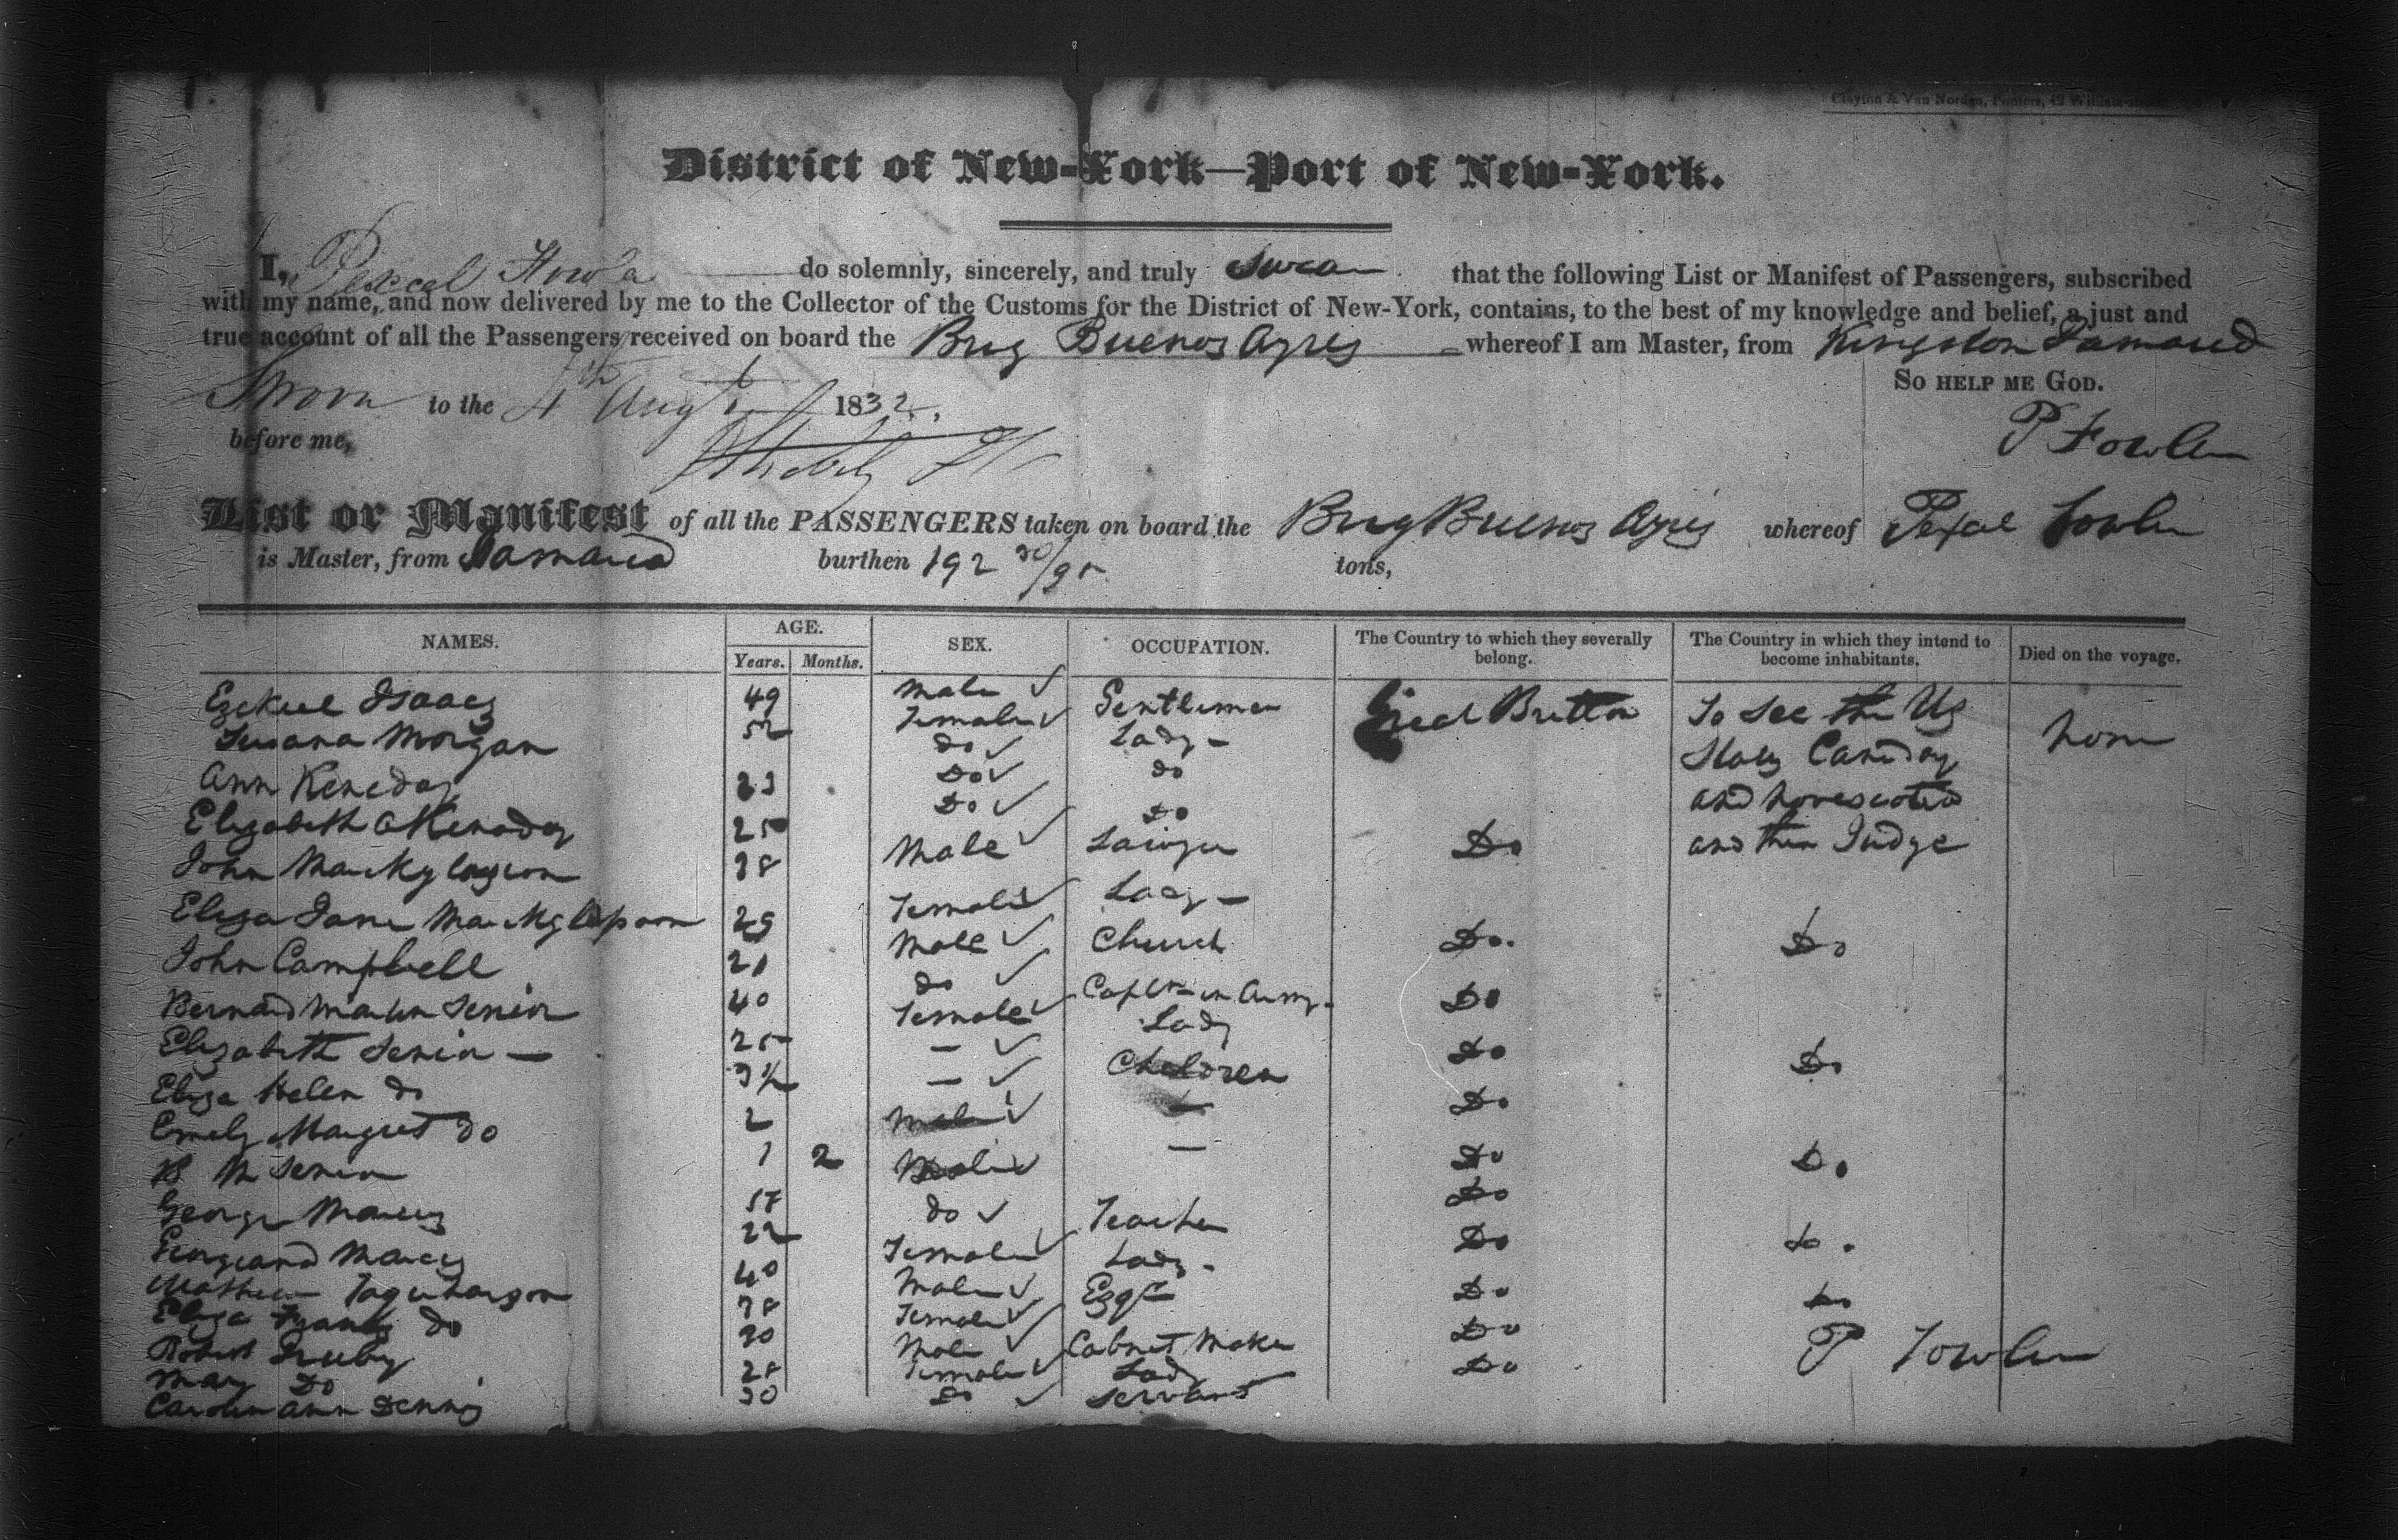 Clayton & Van Norden, Printers, 49 William-street
District of New-York—Port of New-York.
I, Pexcel Fowle do solemnly, sincerely, and truly Swear that the following List or Manifest of Passengers, subscribed
with my name, and now delivered by me to the Collector of the Customs for the District of New-York, contains, to the best of my knowledge and belief, a just and
true account of all the Passengers received on board the Brig Buenos Ayres whereof I am Master, from Kingston Jamaica
So HELP ME GOD.
Sworn to the 4th Augt 1832,
before me,
P Fowler
List or Manifest of all the PASSENGERS taken on board the Brig Buenos Ayres whereof Pexcel Fowler
is Master, from Jamaica burthen 192 30/95 tons,
NAMES. AGE. Years. Months. SEX. OCCUPATION. The Country to which they severally belong. The Country in which they intend to become inhabitants. Died on the voyage.
Ezekiel Isaacs 49 Male Gentleman Great Britton To See the Us none
Susana Morgan 52 Female Lady States Canaday
Ann Keneday 23 do do and novescotia
Elizabeth A Kenaday 25 Do Do and then Judge
John 38 Male Do
Eliza Jane 29 Female Lady
John Campbell 21 Male Church Do. Do
Bernard Martin Senior 40 do Captn in Army Do
Elizabeth Senior 25 Female Lady Do Do
Eliza Helen do 3½ — Children Do
Emely Margret do 2 — — Do Do
B M Senior 1 2 Male — Do
George Marcy 57 Male Teacher Do
Georgeand Marcy 22 Female Lady Do
Mathew 40 Male Esqr Do
Eliza Frances do 38 Female Do
Robert 30 Male Cabnet Maker Do
Mary Do 28 Female Lady
Carolin Ann Dennis 30 Do Servant
P Fowler